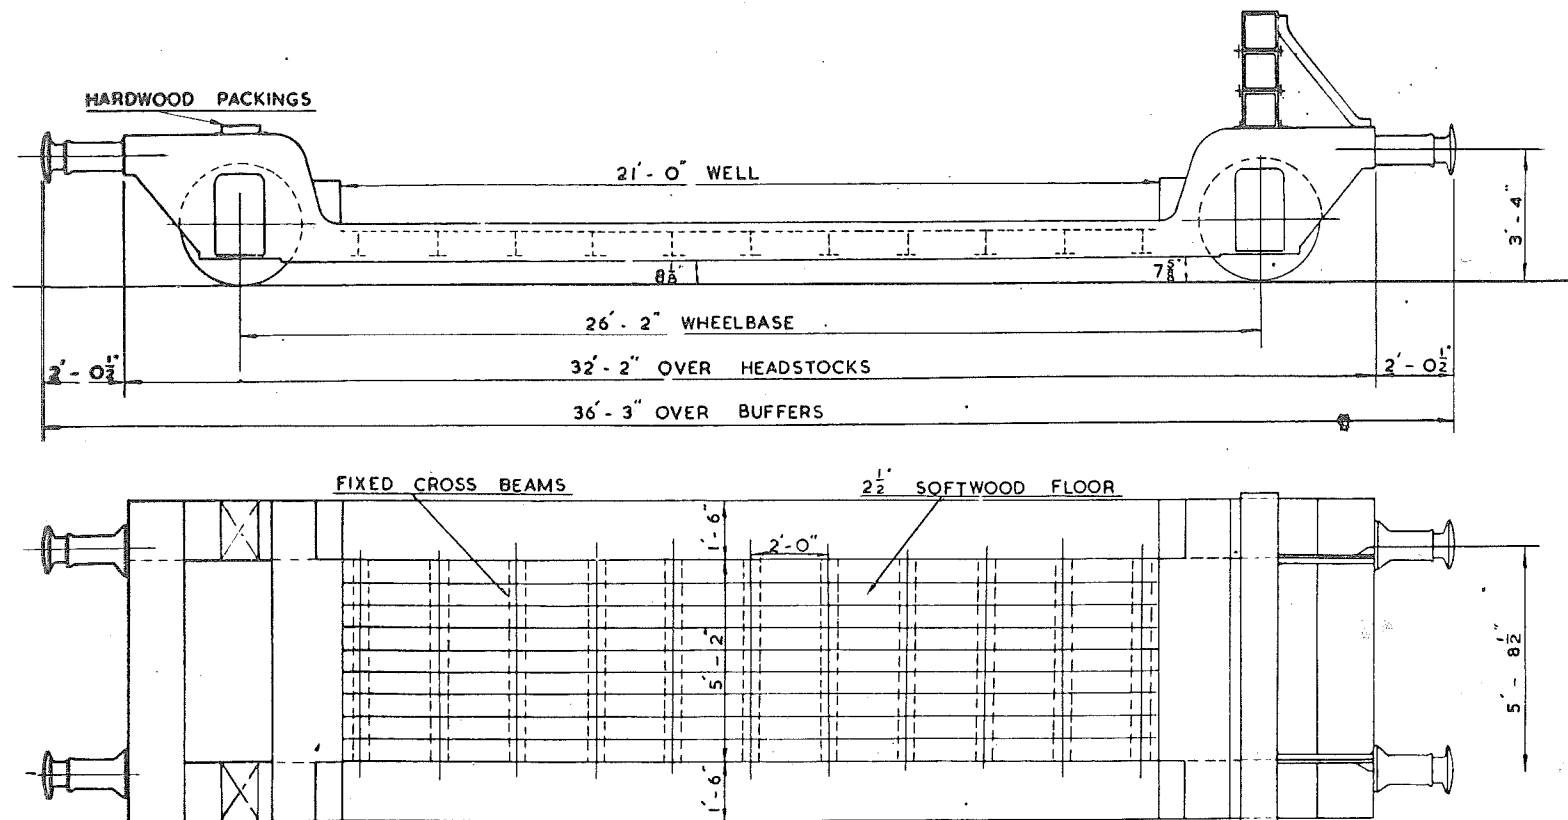 HARDWOOD PACKINGS
21'-0" WELL
3'-4"
8 1/8"
7 5/8"
26'-2" WHEELBASE
2'-0 1/2"
32'-2" OVER HEADSTOCKS
2'-0 1/2"
36'-3" OVER BUFFERS
FIXED CROSS BEAMS
2 1/2" SOFTWOOD FLOOR
1'-6"
2'-0"
5'-2"
5'-8 1/2"
1'-6"